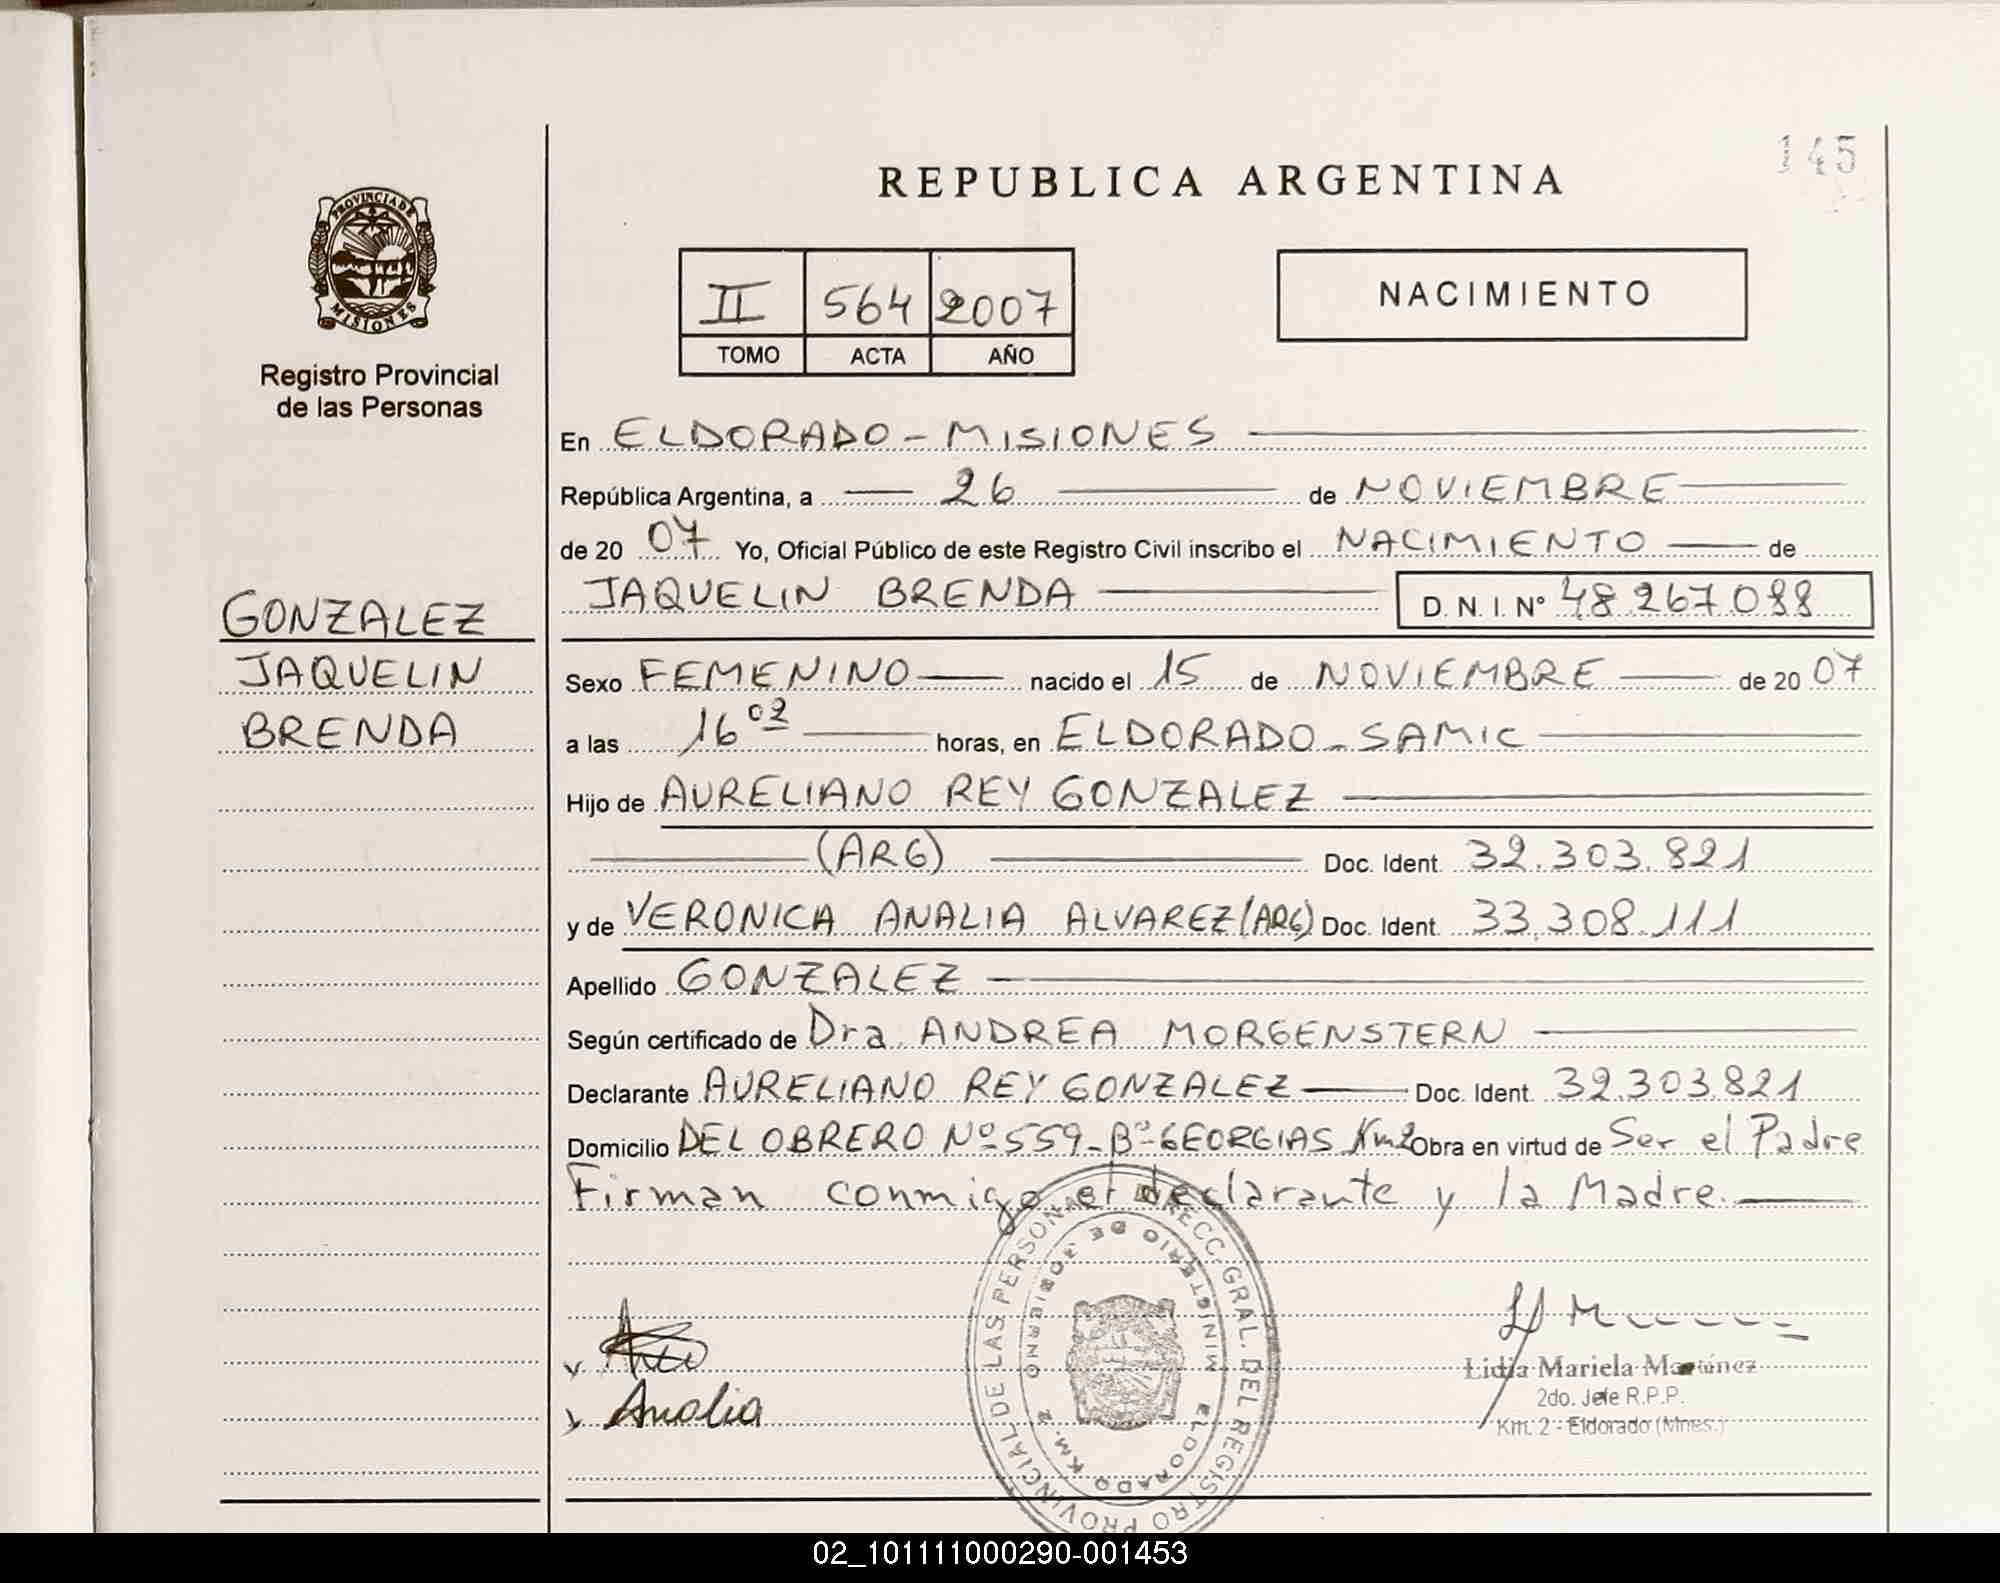 145
REPUBLICA ARGENTINA
PROVINCIA DE
MISIONES
Registro Provincial
de las Personas
II 564 2007
TOMO ACTA AÑO
NACIMIENTO
En ELDORADO - MISIONES
República Argentina, a 26 de NOVIEMBRE
de 20 07 Yo, Oficial Público de este Registro Civil inscribo el NACIMIENTO de
JAQUELIN BRENDA D.N.I. Nº 48.267.088
GONZALEZ
JAQUELIN
BRENDA
Sexo FEMENINO nacido el 15 de NOVIEMBRE de 20 07
a las 16 02 horas, en ELDORADO - SAMIC
Hijo de AURELIANO REY GONZALEZ
(ARG) Doc. Ident. 32.303.821
y de VERONICA ANALIA ALVAREZ (ARG) Doc. Ident. 33.308.111
Apellido GONZALEZ
Según certificado de Dra. ANDREA MORGENSTERN
Declarante AURELIANO REY GONZALEZ Doc. Ident. 32.303.821
Domicilio DEL OBRERO Nº 559 - Bº GEORGIAS Km2 Obra en virtud de Ser el Padre
Firman conmigo el declarante y la Madre.
DIRECC. GRAL. DEL REGISTRO PROVINCIAL DE LAS PERSONAS
MINISTERIO DE GOBIERNO
ELDORADO KM. 2
Analia
Lidia Mariela Martinez
2do. Jefe R.P.P.
Km. 2 - Eldorado (Mnes.)
02_101111000290-001453